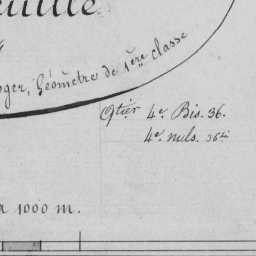 euille
oger, Géomètre de 1ère classe
Qtier 4e. Bis. 36.
4e. nuls. 36
à 1000 m.